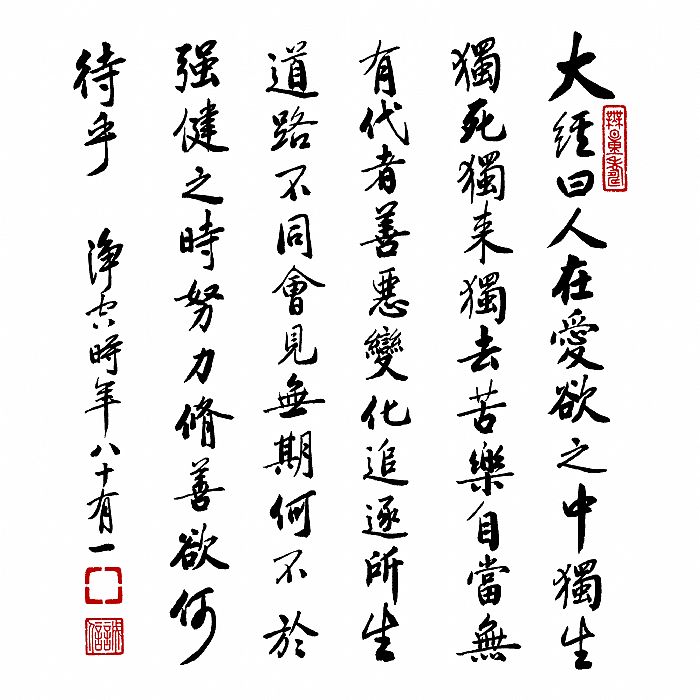 大經曰人在愛欲之中獨生
獨死獨来獨去苦樂自當無
有代者善惡變化追逐所生
道路不同會見無期何不於
强健之時努力脩善欲何
待乎
淨空時年八十有一